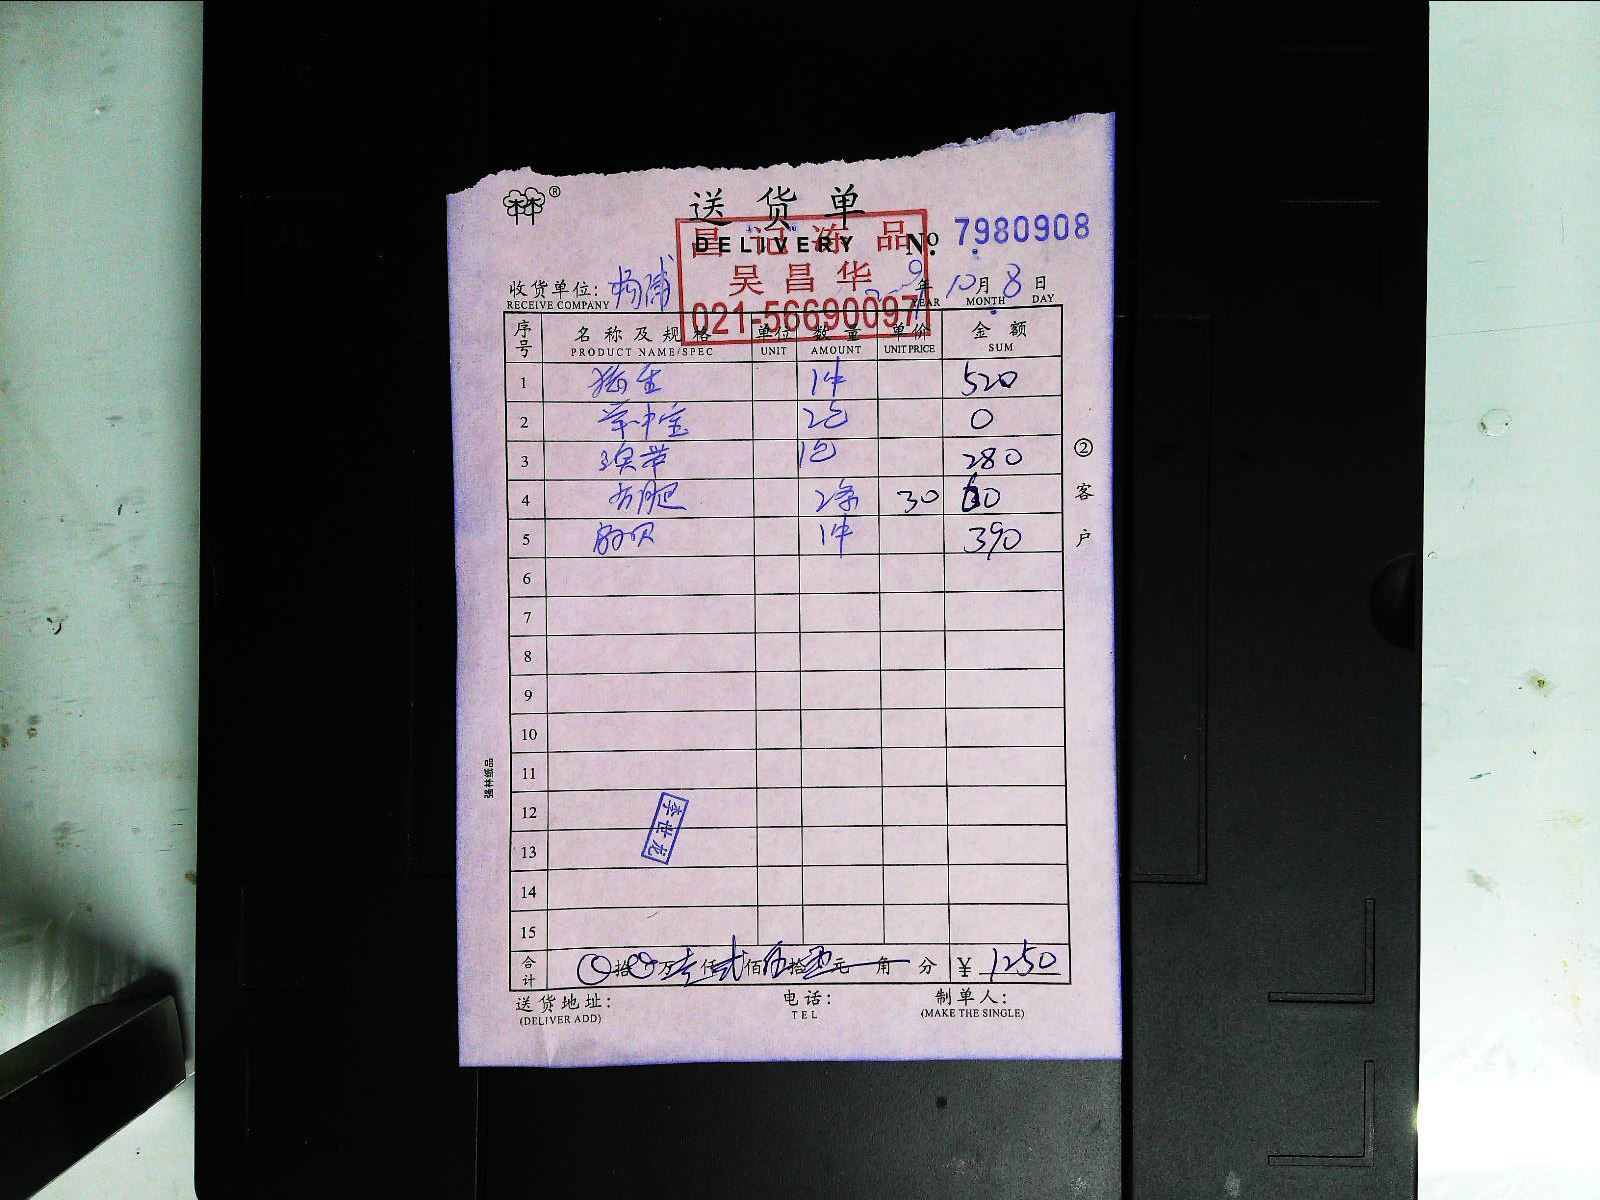 林®
送货单
DELIVERY
No. 7980908
昌记冻品
吴昌华
021-56690097
收货单位: 杨浦 2009年 10月 8日
RECEIVE COMPANY YEAR MONTH DAY
序号 名称及规格 单位 数量 单价 金额
PRODUCT NAME/SPEC UNIT AMOUNT UNIT PRICE SUM
1 1件 520
2 2包 0
3 1包 280
4 2条 30 60
5 1件 390
6
7
8
9
10
11
12
13
14
15
②客户
强林纸品
李世龙
合计 拾万壹仟贰佰伍拾元角分 ¥1250
送货地址: 电话: 制单人:
(DELIVER ADD) TEL (MAKE THE SINGLE)